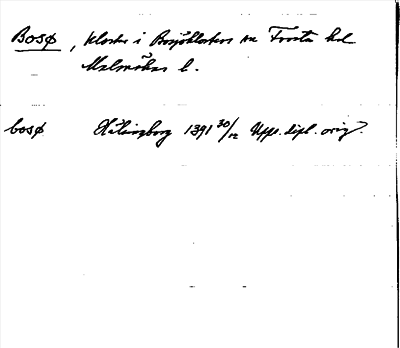 Bosø, kloster i Bosjöklosters sn Frosta hd
Malmöhus l.
bosø Hälsingborg 1391 30/12 Upps. dipl. orig